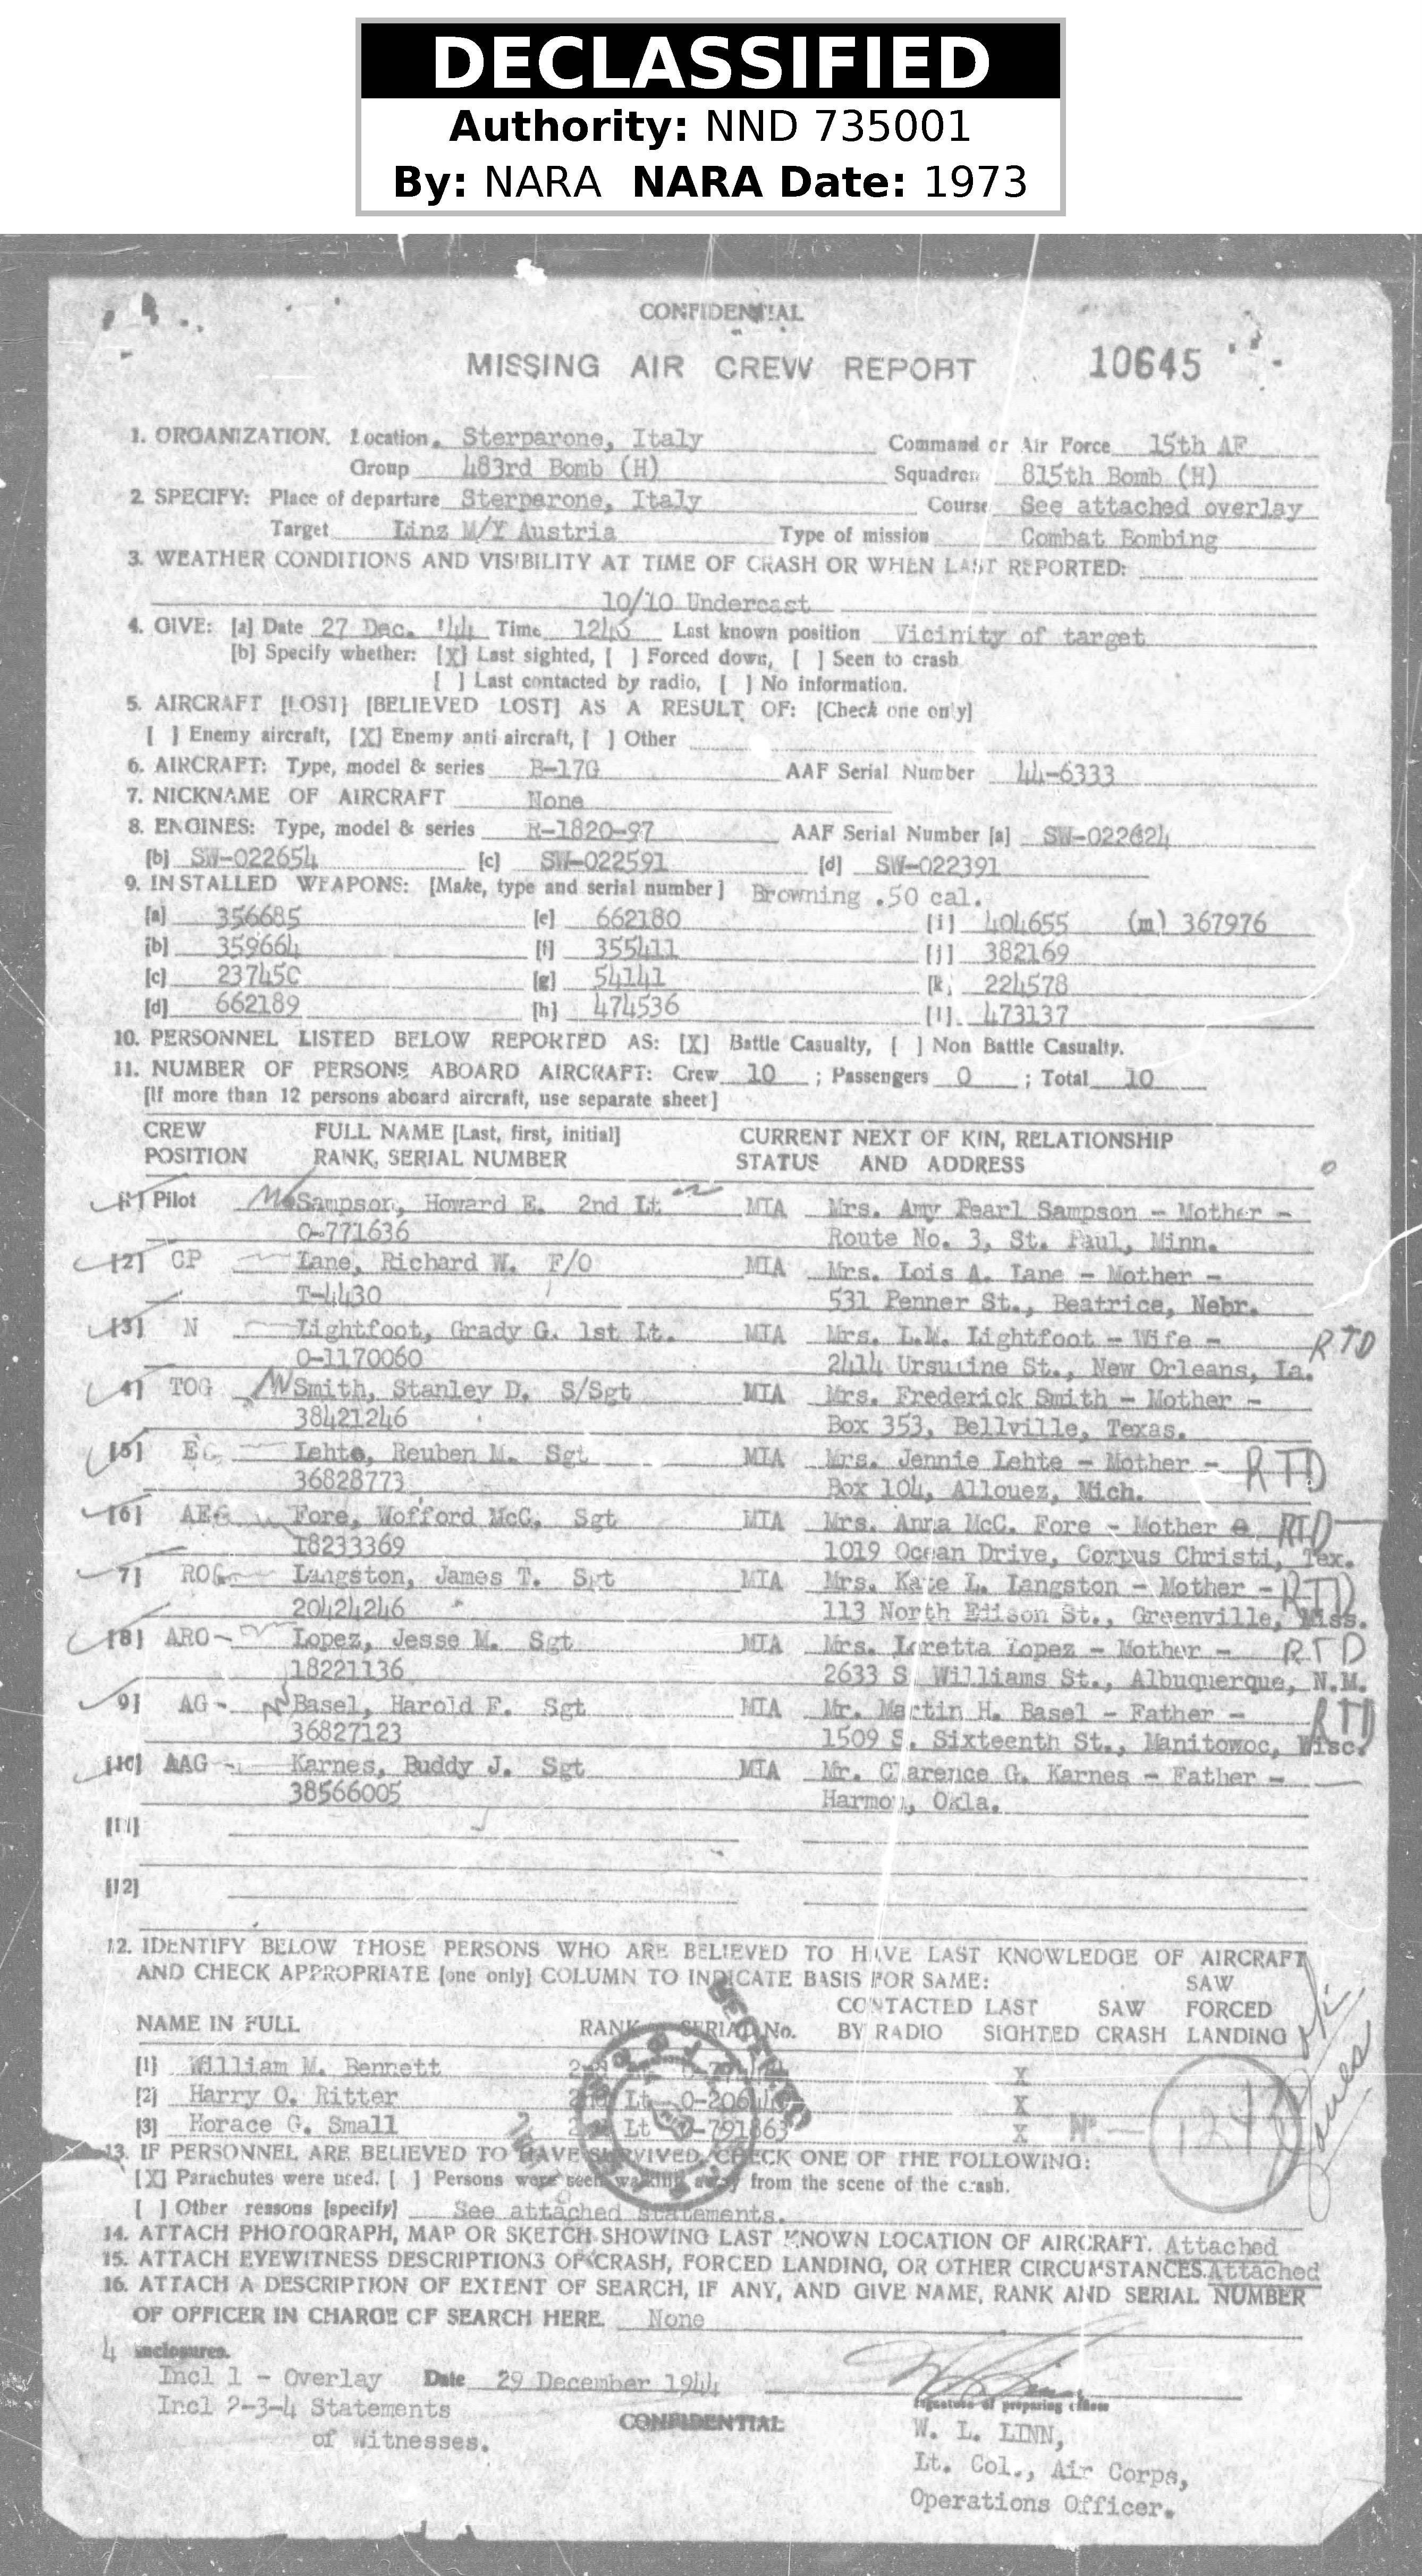 DECLASSIFIED
Authority: NND 735001
By: NARA NARA Date: 1973
CONFIDENTIAL
MISSING AIR CREW REPORT 10645
1. ORGANIZATION. Location. Sterparone, Italy Command or Air Force 15th AF
Group 483rd Bomb (H) Squadron 815th Bomb (H)
2. SPECIFY: Place of departure Sterparone, Italy Course See attached overlay
Target Linz M/Y Austria Type of mission Combat Bombing
3. WEATHER CONDITIONS AND VISIBILITY AT TIME OF CRASH OR WHEN LAST REPORTED:
10/10 Undercast
4. GIVE: [a] Date 27 Dec. '44 Time Last known position Vicinity of target
[b] Specify whether: [X] Last sighted, [ ] Forced down, [ ] Seen to crash
[ ] Last contacted by radio, [ ] No information.
5. AIRCRAFT [LOST] [BELIEVED LOST] AS A RESULT OF: [Check one only]
[ ] Enemy aircraft, [X] Enemy anti aircraft, [ ] Other
6. AIRCRAFT: Type, model & series B-17G AAF Serial Number 44-6333
7. NICKNAME OF AIRCRAFT None
8. ENGINES: Type, model & series R-1820-97 AAF Serial Number [a] SW-022624
[b] SW-022654 [c] SW-022591 [d] SW-022391
9. INSTALLED WEAPONS: [Make, type and serial number] Browning .50 cal.
[a] 356685 [e] 662180 [i] 404655 (m) 367976
[b] 359664 [f] 355411 [j] 382169
[c] 237450 [g] 54141 [k] 224578
[d] 662189 [h] 474536 [l] 473137
10. PERSONNEL LISTED BELOW REPORTED AS: [X] Battle Casualty, [ ] Non Battle Casualty.
11. NUMBER OF PERSONS ABOARD AIRCRAFT: Crew 10 ; Passengers 0 ; Total 10
[If more than 12 persons aboard aircraft, use separate sheet]
CREW FULL NAME [Last, first, initial] CURRENT NEXT OF KIN, RELATIONSHIP
POSITION RANK, SERIAL NUMBER STATUS AND ADDRESS
[1] Pilot Sampson, Howard E. 2nd Lt MIA Mrs. Amy Pearl Sampson - Mother -
O-771636 Route No. 3, St. Paul, Minn.
[2] CP Lane, Richard W. F/O MIA Mrs. Lois A. Lane - Mother -
T-4430 531 Penner St., Beatrice, Nebr.
[3] N Lightfoot, Grady G. 1st Lt. MIA Mrs. L.M. Lightfoot - Wife - RTD
O-1170060 2414 Ursuline St., New Orleans, La.
[4] TOG Smith, Stanley D. S/Sgt MIA Mrs. Frederick Smith - Mother -
38421246 Box 353, Bellville, Texas.
[5] EG Lehto, Reuben M. Sgt MIA Mrs. Jennie Lehte - Mother - RTD
36828773 Box 104, Allouez, Mich.
[6] AEG Fore, Wofford McC. Sgt MIA Mrs. Anna McC. Fore - Mother RTD
18233369 1019 Ocean Drive, Corpus Christi, Tex.
[7] ROG Langston, James T. Sgt MIA Mrs. Kate L. Langston - Mother - RTD
20424246 113 North Edison St., Greenville, Miss.
[8] ARO - Lopez, Jesse M. Sgt MIA Mrs. Loretta Lopez - Mother - RTD
18221136 2633 S. Williams St., Albuquerque, N.M.
[9] AG - Basel, Harold F. Sgt MIA Mr. Martin H. Basel - Father - RTD
36827123 1509 S. Sixteenth St., Manitowoc, Wisc.
[10] AAG - Karnes, Buddy J. Sgt MIA Mr. Clarence G. Karnes - Father -
38566005 Harmon, Okla.
[11]
[12]
12. IDENTIFY BELOW THOSE PERSONS WHO ARE BELIEVED TO HAVE LAST KNOWLEDGE OF AIRCRAFT
AND CHECK APPROPRIATE [one only] COLUMN TO INDICATE BASIS FOR SAME: SAW
CONTACTED LAST SAW FORCED
NAME IN FULL RANK SERIAL No. BY RADIO SIGHTED CRASH LANDING
[1] William M. Bennett X
[2] Harry O. Ritter 2nd Lt X
[3] Horace G. Small 2nd Lt O-791863 X No
13. IF PERSONNEL ARE BELIEVED TO HAVE SURVIVED, CHECK ONE OF THE FOLLOWING:
[X] Parachutes were used. [ ] Persons were seen walking away from the scene of the crash.
[ ] Other reasons [specify] See attached statements.
14. ATTACH PHOTOGRAPH, MAP OR SKETCH SHOWING LAST KNOWN LOCATION OF AIRCRAFT. Attached
15. ATTACH EYEWITNESS DESCRIPTIONS OF CRASH, FORCED LANDING, OR OTHER CIRCUMSTANCES. Attached
16. ATTACH A DESCRIPTION OF EXTENT OF SEARCH, IF ANY, AND GIVE NAME, RANK AND SERIAL NUMBER
OF OFFICER IN CHARGE OF SEARCH HERE. None
4 enclosures.
Incl 1 - Overlay Date 29 December 1944
Signature of preparing officer
Incl 2-3-4 Statements CONFIDENTIAL W. L. LINN,
of Witnesses. Lt. Col., Air Corps,
Operations Officer.